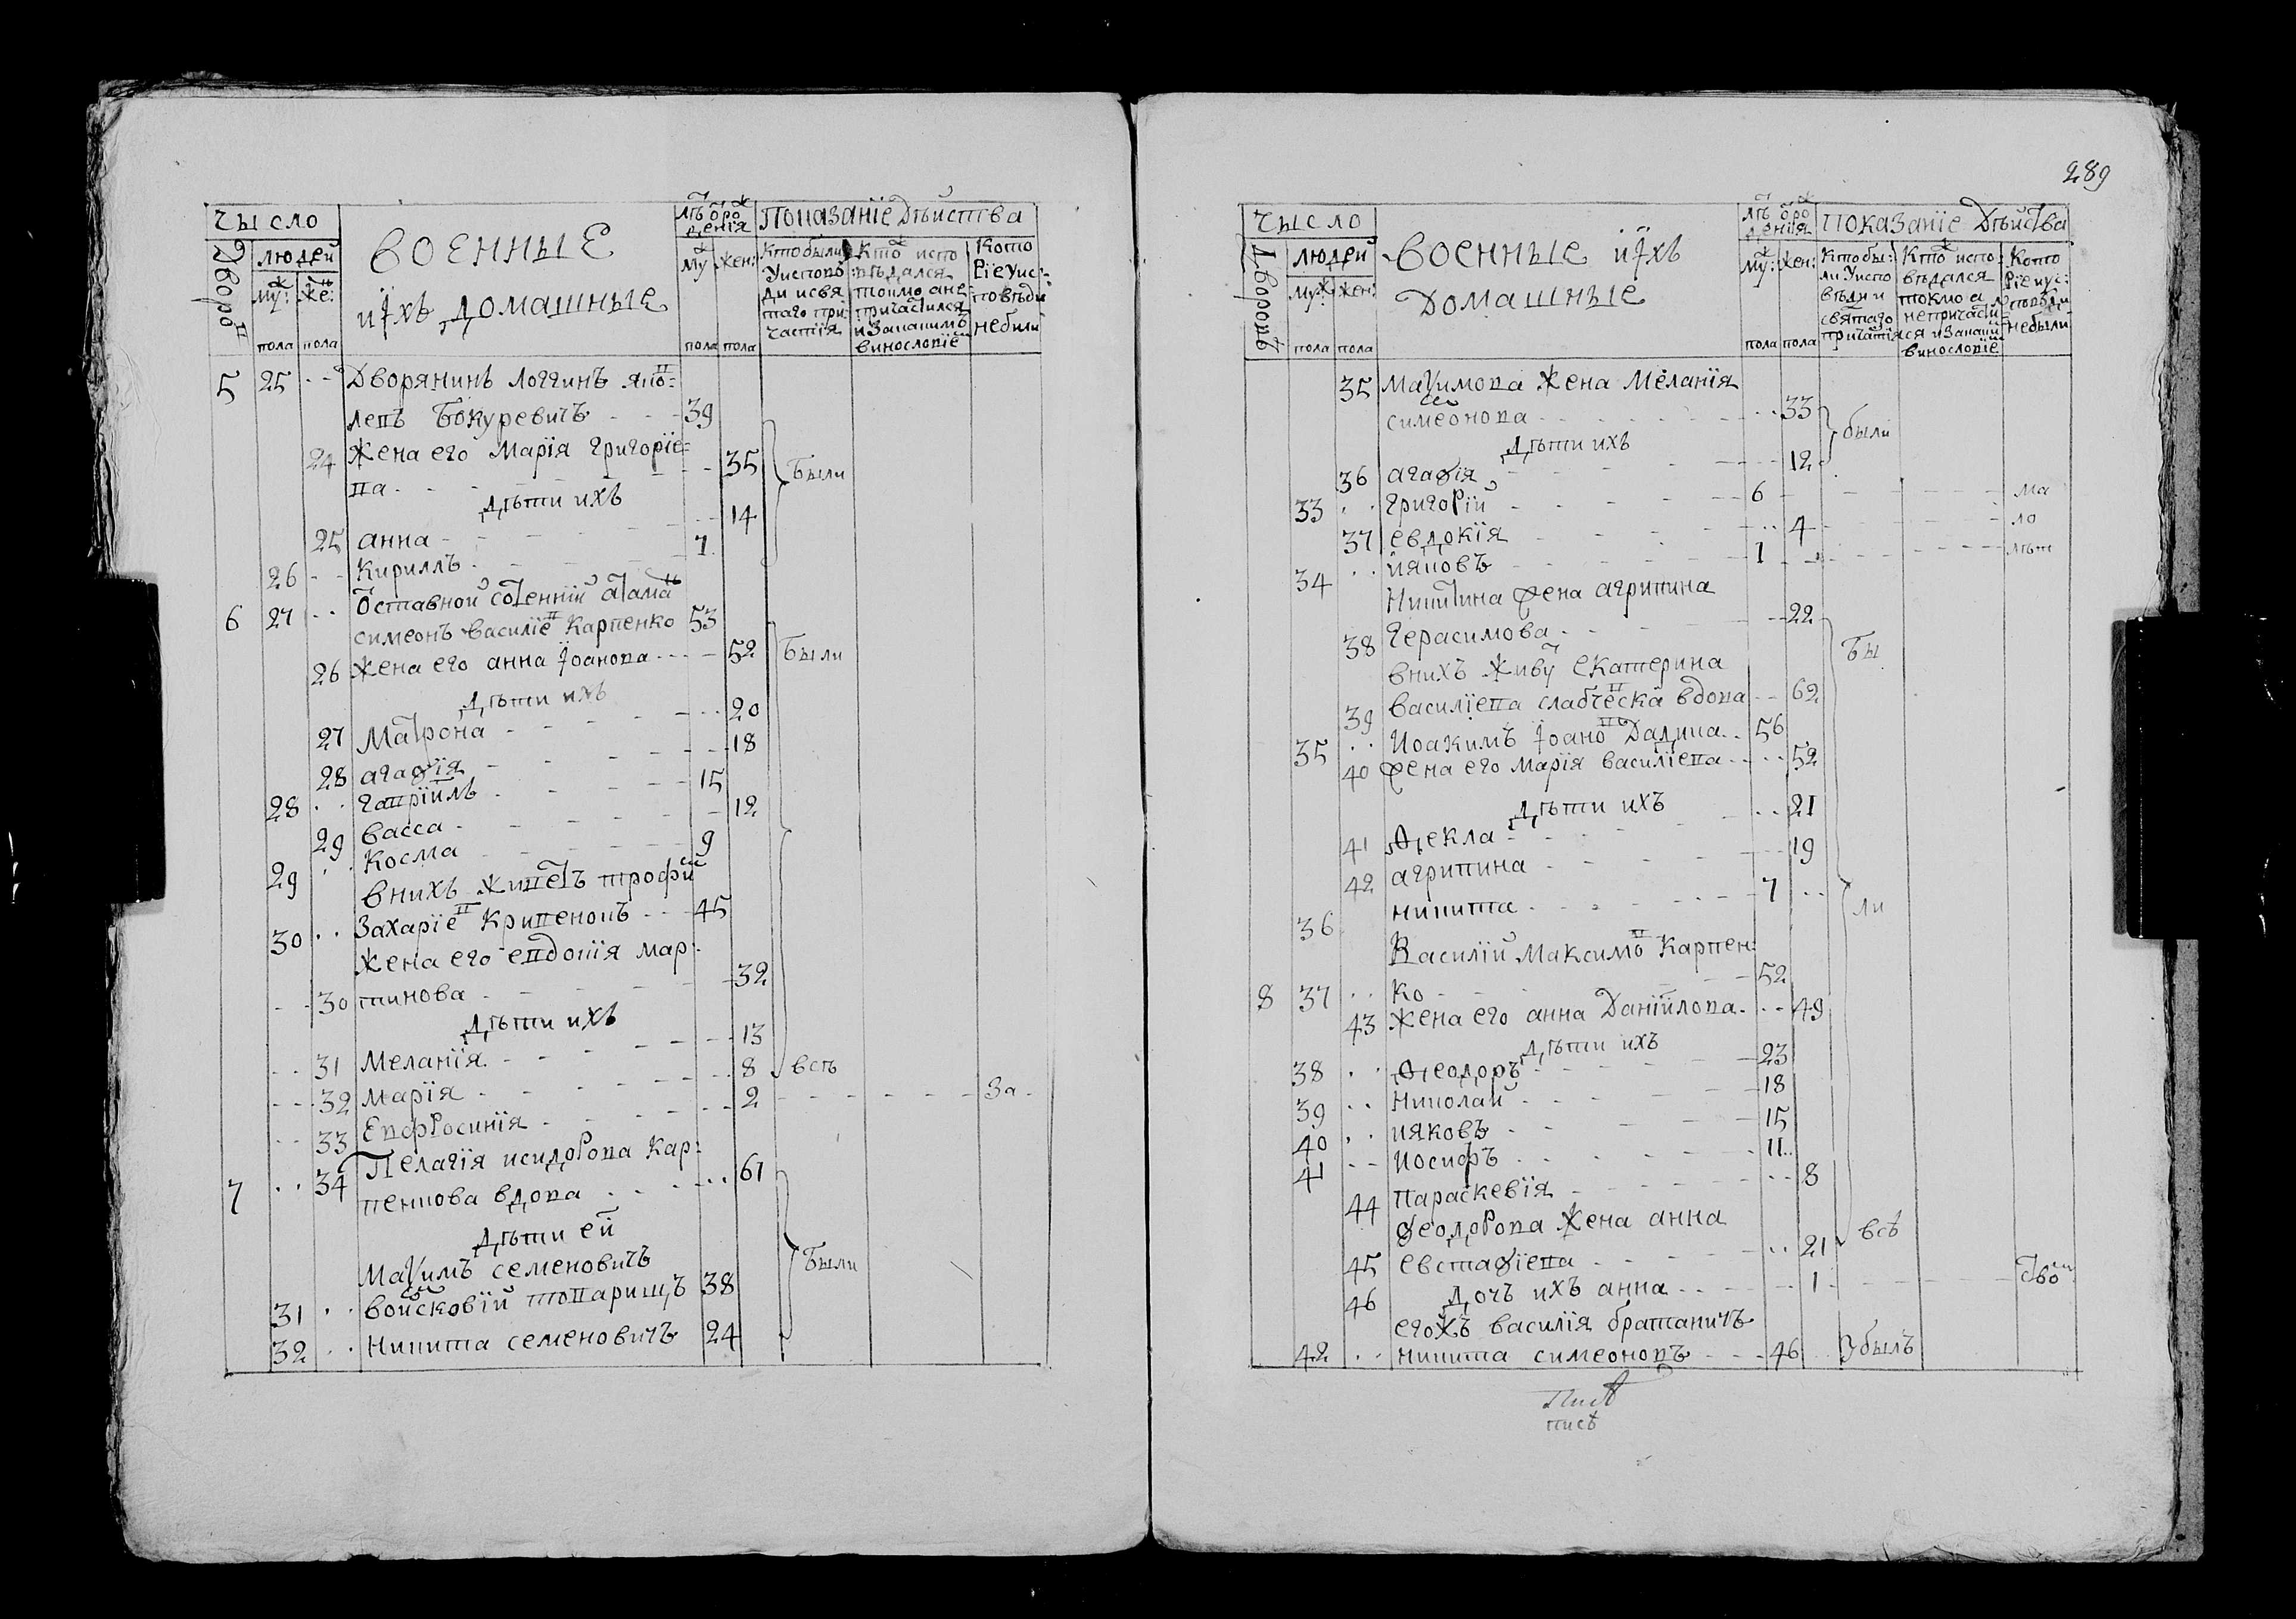 чысло
Дворо в
людей
муж: жен:
пола пола
военные
ихъ домашные
лѣтъ о рождения
муж жен:
пола пола
показаніе дѣйства
Кто были
Уиспове
ди исвя
таго при:
частія
Кто испо
вѣдался
токмо а не
причастился
и Закакимъ
винословіем
Кото
ріе Уис:
повѣди
небили
5 25 Дворянинъ логгинъ яков:
левъ Бокуревичъ 39
24 жена его Марія григоріе:
ва 35 Были
дѣти ихъ
25 анна 14
26 Кириллъ 7
6 27 Отставной сотенній атаманъ
симеонъ василіев Карпенко 53
26 жена его анна Іоанова 52 Были
дѣти ихъ
27 Матрона 20
28 агафія 18
28 гавріилъ 15
29 васса 12
29 Косма 9
внихъ живетъ трофим
30 Захаріев Кривенокъ 45
жена его евдокія мар:
30 тинова 32
дѣти ихъ
31 Меланія 13
32 Марія 8 всѣ
33 Евфросинія 2 За
7 34 Пелагія исидорова кар:
пенкова вдова 61
дѣти ей
Маѯимъ семеновичъ
31 войсковій товарищъ 38 Были
32 Никита семеновичъ 24
289
чысло
Дворовъ
людей
муж: жен:
пола пола
военные ихъ
домашные
лѣтъ о рождения
муж: жен:
пола пола
показаніе дѣйства
Кто бы:
ли Уиспо
вѣди и
святаго
причастія
Кто испо:
вѣдался
токмо а
непричасти
лся и Закаким
винословіем
Кото
ріе ис:
повѣди
небыли
35 маѯимова жена Меланія
симеонова 33 были
дѣти ихъ
36 агафія 12
33 григорій 6 ма
37 евдокія 4 ло
34 ияковъ 1 лѣт
Никитина жена агрипина
38 герасимова 22
внихъ живут екатерина Бы
39 василіева слабческая вдова 62
35 Иоакимъ Іоанов Дадика 56
40 жена его марія василіева 52
дѣти ихъ
41 Ѳекла 21
42 агрипина 19
36 никита 7 ли
Василій Максимов Карпен:
8 37 ко 52
43 жена его анна Даніилова 49
дѣти ихъ
38 Ѳеодоръ 23
39 Николай 18
40 ияковъ 15
41 Иосифъ 11
44 параскевія 8
феодорова жена анна
45 евстафіева 21 всѣ
46 дочъ ихъ анна 1
егожъ василія братаничъ
42 никита симеоновъ 46 Убылъ